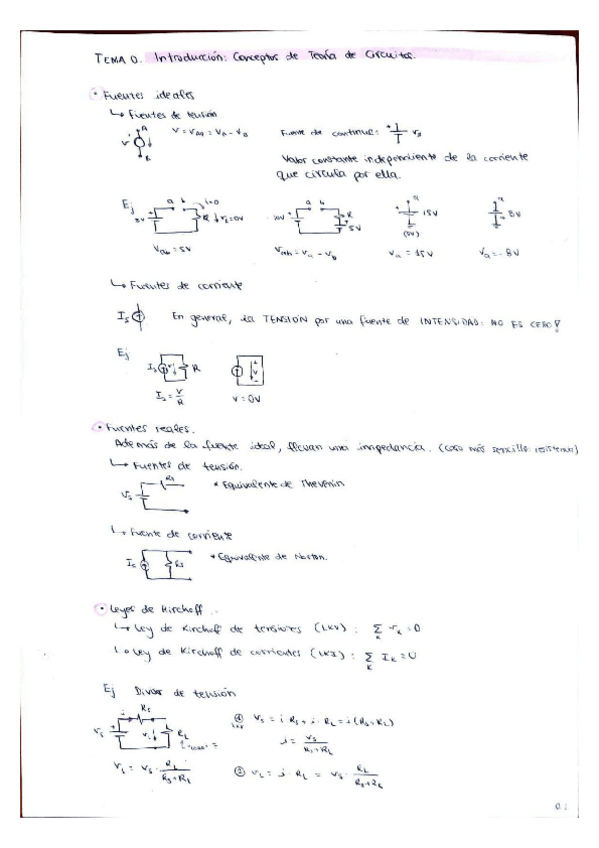 TEMA 0. Introducción: Conceptos de Teoría de Circuitos.
• Fuentes ideales
↳ Fuentes de tensión
A
V = V_AB = V_A - V_B
Fuente de continua:
B
Valor constante independiente de la corriente
que circula por ella.
Ej
a b i=0
R
=0V
a b
R
5V
a
15V
(0V)
8V
V_ab = 5V
V_ab = V_a - V_b
V_a = 15V
V_a = -8V
↳ Fuentes de corriente
I_s
En general, la TENSIÓN por una fuente de INTENSIDAD: NO ES CERO!
Ej
I_s V R
+ V -
I_s = V/R
V = 0V
• Fuentes reales.
Además de la fuente ideal, llevan una impedancia. (caso más sencillo: resistencia)
↳ Fuentes de tensión.
V_s R_s
* Equivalente de Thevenin
↳ Fuente de corriente
I_s R_s
* Equivalente de Norton.
• Leyes de Kirchoff.
↳ Ley de Kirchoff de tensiones (LKV): Σ_k v_k = 0
↳ Ley de Kirchoff de corrientes (LKI): Σ_k I_k = 0
Ej Divisor de tensión
R_s
V_s V_L R_L
① V_s = i · R_s + i · R_L = i (R_s + R_L)
i = V_s / (R_s + R_L)
V_L = V_s · R_L / (R_s + R_L)
② V_L = i · R_L = V_s · R_L / (R_s + R_L)